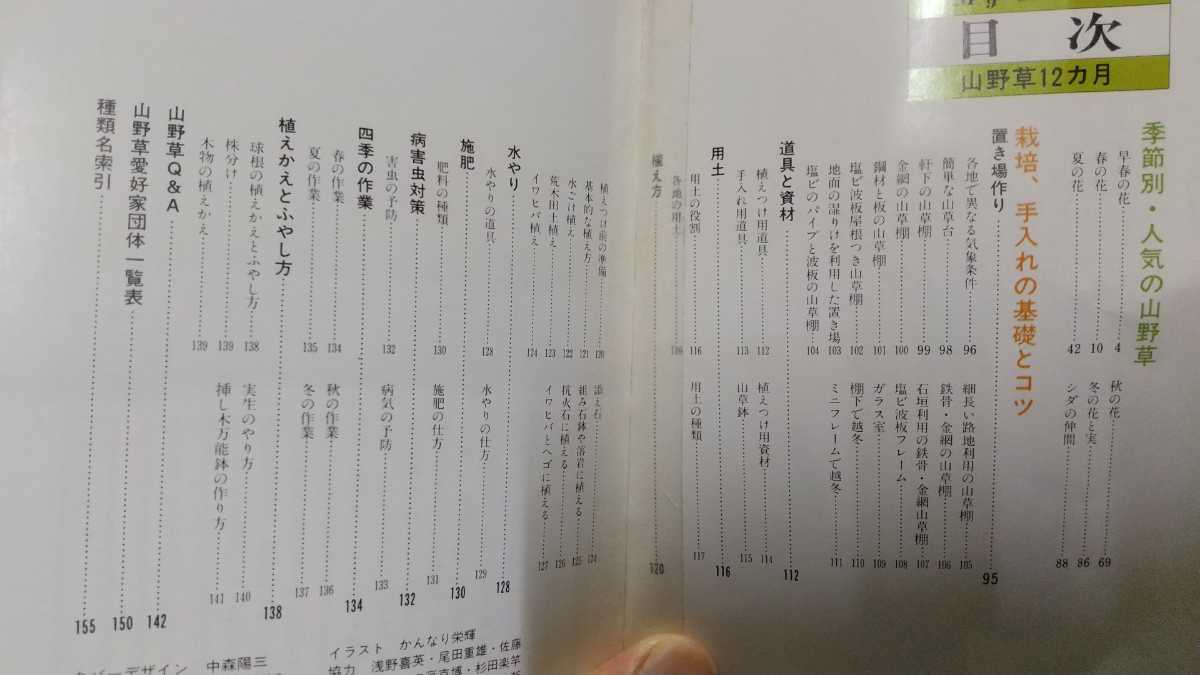 目次
山野草12カ月
季節別・人気の山野草
早春の花……4
春の花……10
夏の花……42
秋の花……69
冬の花と実……86
シダの仲間……88
栽培、手入れの基礎とコツ
置き場作り……95
各地で異なる気象条件……96
簡単な山草台……98
軒下の山草棚……99
金網の山草棚……100
鋼材と板の山草棚……101
塩ビ波板屋根つき山草棚……102
地面の湿りけを利用した置き場……103
塩ビのパイプと波板の山草棚……104
細長い路地利用の山草棚……105
鉄骨・金網の山草棚……106
石垣利用の鉄骨・金網山草棚……107
塩ビ波板フレーム……108
ガラス室……109
棚下で越冬……110
ミニフレームで越冬……111
道具と資材……112
植えつけ用道具……112
手入れ用道具……113
植えつけ用資材……114
山草鉢……115
用土……116
用土の役割……116
各地の用土
用土の種類……117
植え方……120
植えつけ前の準備……120
基本的な植え方……121
水ごけ植え……122
荒木田土植え……123
イワヒバ植え……124
添え石……124
組み石鉢や溶岩に植える……125
抗火石に植える……126
イワヒバとヘゴに植える……127
水やり……128
水やりの道具……128
水やりの仕方……129
施肥……130
肥料の種類……130
施肥の仕方……131
病害虫対策……132
害虫の予防……132
病気の予防……133
四季の作業……134
春の作業……134
夏の作業……135
秋の作業……136
冬の作業……137
植えかえとふやし方……138
球根の植えかえとふやし方……138
株分け……139
木物の植えかえ……139
実生のやり方……140
挿し木万能鉢の作り方……141
山野草Q&A……142
山野草愛好家団体一覧表……150
種類名索引……155
イラスト かんなり栄輝
協力 浅野喜英・尾田重雄・佐藤
克博・杉田楽竿
デザイン 中森陽三